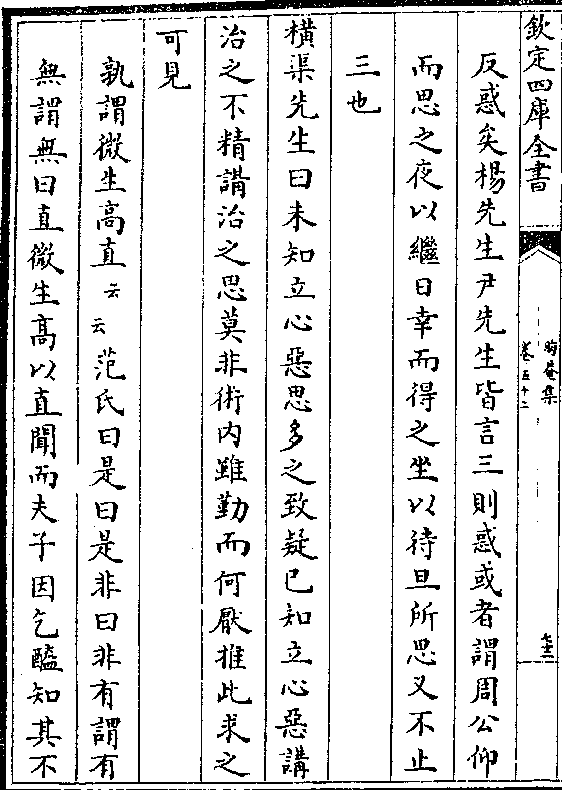 欽定四庫全書
晦菴集
卷五十二
反惑矣楊先生尹先生皆言三則惑或者謂周公仰
而思之夜以繼日幸而得之坐以待旦所思又不止
三也
橫渠先生曰未知立心惡思多之致疑已知立心惡講
治之不精講治之思莫非術内雖勤而何厭推此求之
可見
孰謂微生高直云云范氏曰是曰是非曰非有謂有
無謂無曰直微生髙以直聞而夫子因乞醯知其不